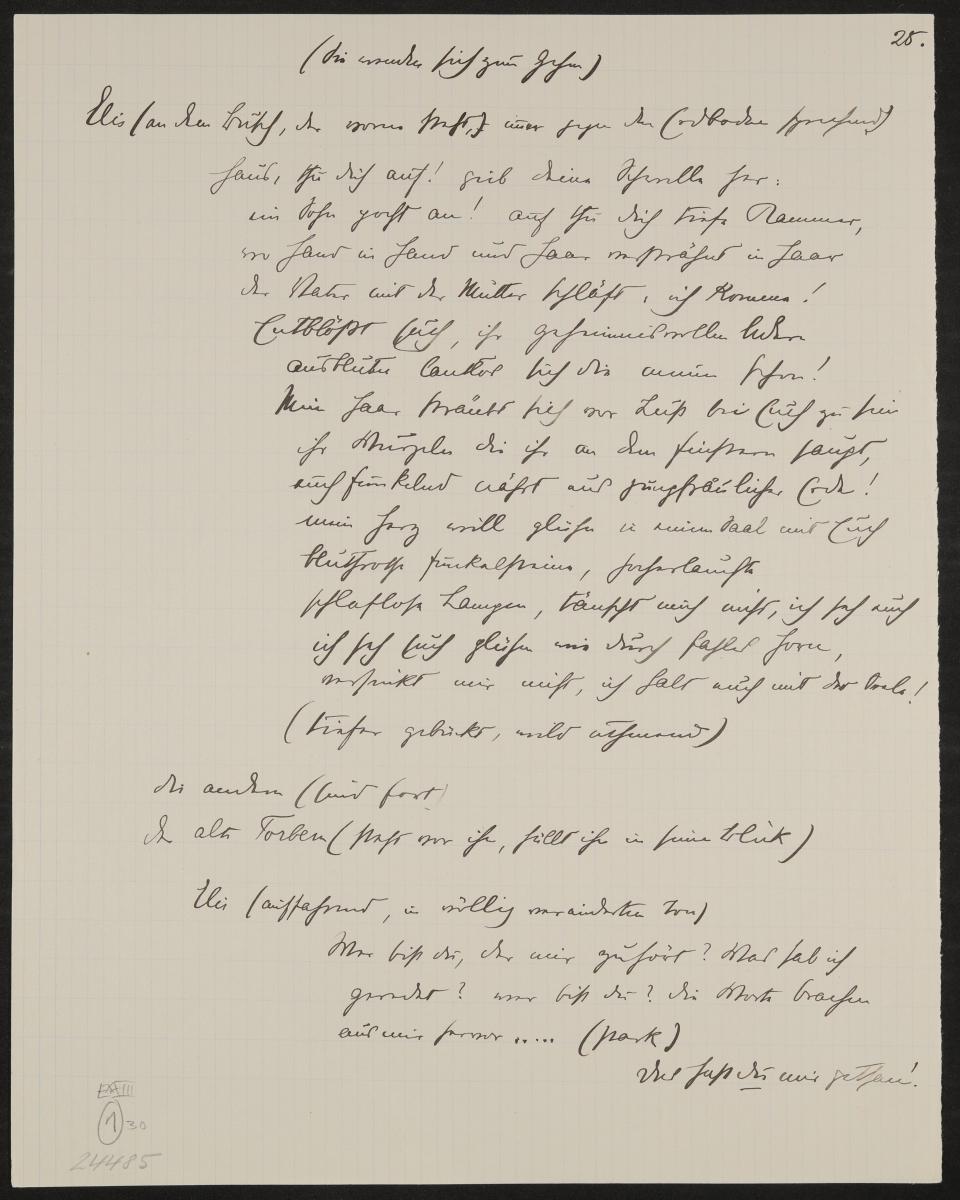 25.
(die wenden sich zum Gehen)
Elis (an dem Busch, der vorne steht, immer gegen den Erdboden sprechend)
Haus, thu dich auf! gieb deine Schwelle her:
ein Sohn pocht an! auf thu dich tiefe Kammer,
wo Hand in Hand und Haar versträhnt in Haar
der Vater mit der Mutter schläft, ich komme!
Entblößt Euch, ihr geheimnisvollen Adern
ausbluten lautlos sich die meinen schon!
Mein Haar sträubt sich vor Lust bei Euch zu sein
ihr Wurzeln die ihr an dem finstern saugt,
euch funkelnd nährt aus jungfräulicher Erde!
mein Herz will glühen in einem Saal mit Euch
blutrothe Funkelsteine, hocherlauchte
schlaflose Lampen, täuscht mich nicht, ich seh euch
ich seh Euch glühen wie durch fahles Horn,
versinkt mir nicht, ich halt euch mit der Seele!
(tiefer gebückt, wild athmend)
die andern (sind fort)
der alte Torbern (steht vor ihm, hüllt ihn in seinen Blick)
Elis (auffahrend, in völlig verändertem Ton)
Wer bist du, der mir zuhört? Was hab ich
geredet? wer bist du? die Worte brachen
aus mir hervor ..... (stark)
Das hast du mir gethan!
1 30
24485